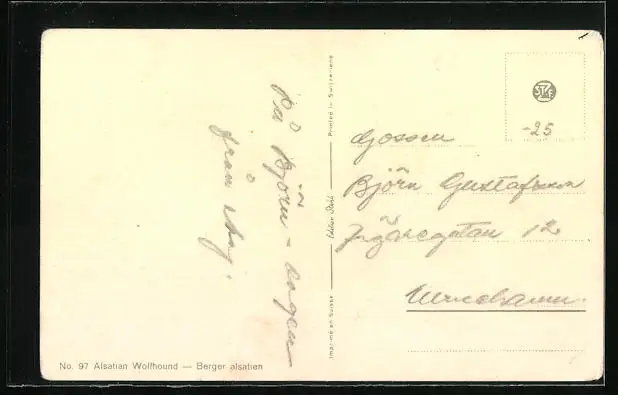 På Björn-dagen
från
No. 97 Alsatian Wolfhound — Berger alsatien
Imprimé en Suisse
Edition Stehli
Printed in Switzerland
-25
Gossen
Björn Gustafsson
12